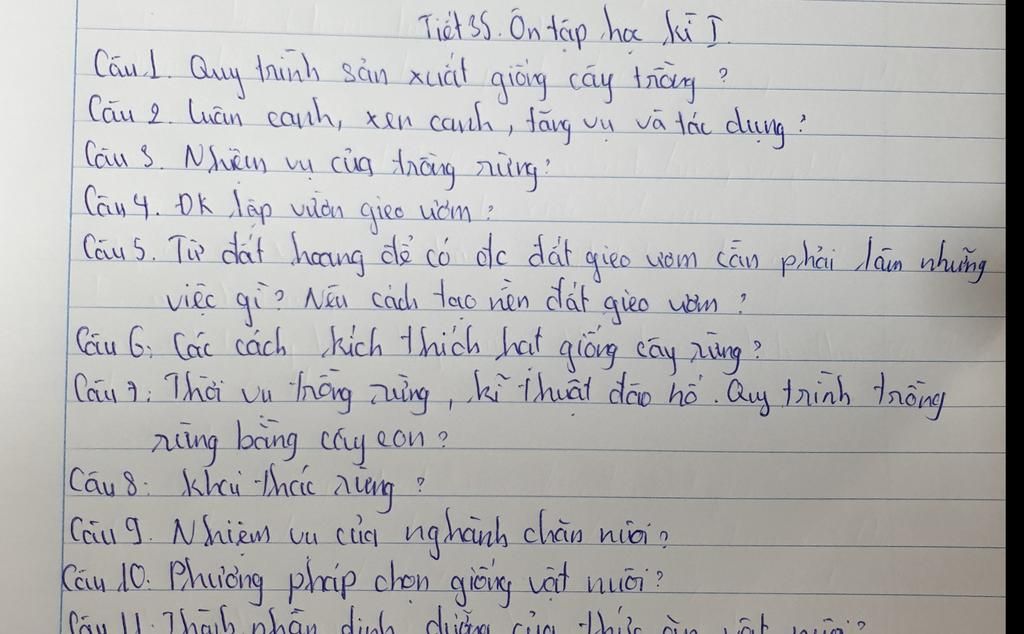 Tiết 35. Ôn tập học kì I
Câu 1. Quy trình sản xuất giống cây trồng ?
Câu 2. Luân canh, xen canh, tăng vụ và tác dụng ?
Câu 3. Nhiệm vụ của trồng rừng ?
Câu 4. ĐK lập vườn gieo ươm ?
Câu 5. Từ đất hoang để có đc đất gieo ươm cần phải làm những
việc gì ? Nêu cách tạo nền đất gieo ươm ?
Câu 6: Các cách kích thích hạt giống cây rừng ?
Câu 7: Thời vụ trồng rừng, kĩ thuật đào hố. Quy trình trồng
rừng bằng cây con ?
Câu 8: Khai thác rừng ?
Câu 9. Nhiệm vụ của nghành chăn nuôi ?
Câu 10. Phương pháp chọn giống vật nuôi ?
Câu 11. Thành phần dinh dưỡng của thức ăn vật nuôi ?